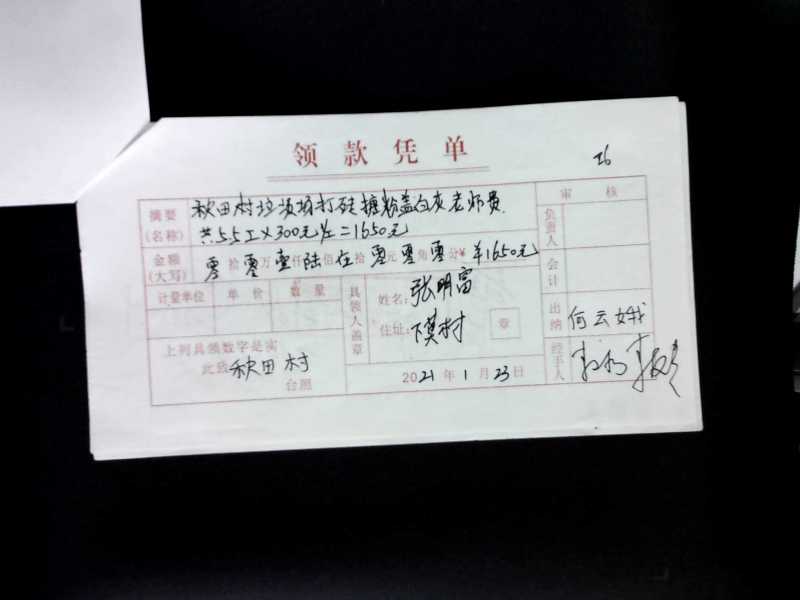 领款凭单
26
摘要(名称) 秋田村垃圾场打硅搪粉盖白灰老师费
共5.5工×300元/工=1650元
金额(大写) 零拾零万壹仟陆佰伍拾零元零角零分¥ 1650元
审核
负责人
会计
出纳 何云娥
经手人
计量单位 单价 数量
具领人盖章
姓名: 张明富
住址: 下莫村
章
上列具领数字是实
此致 秋田村
台照
2021年1月23日